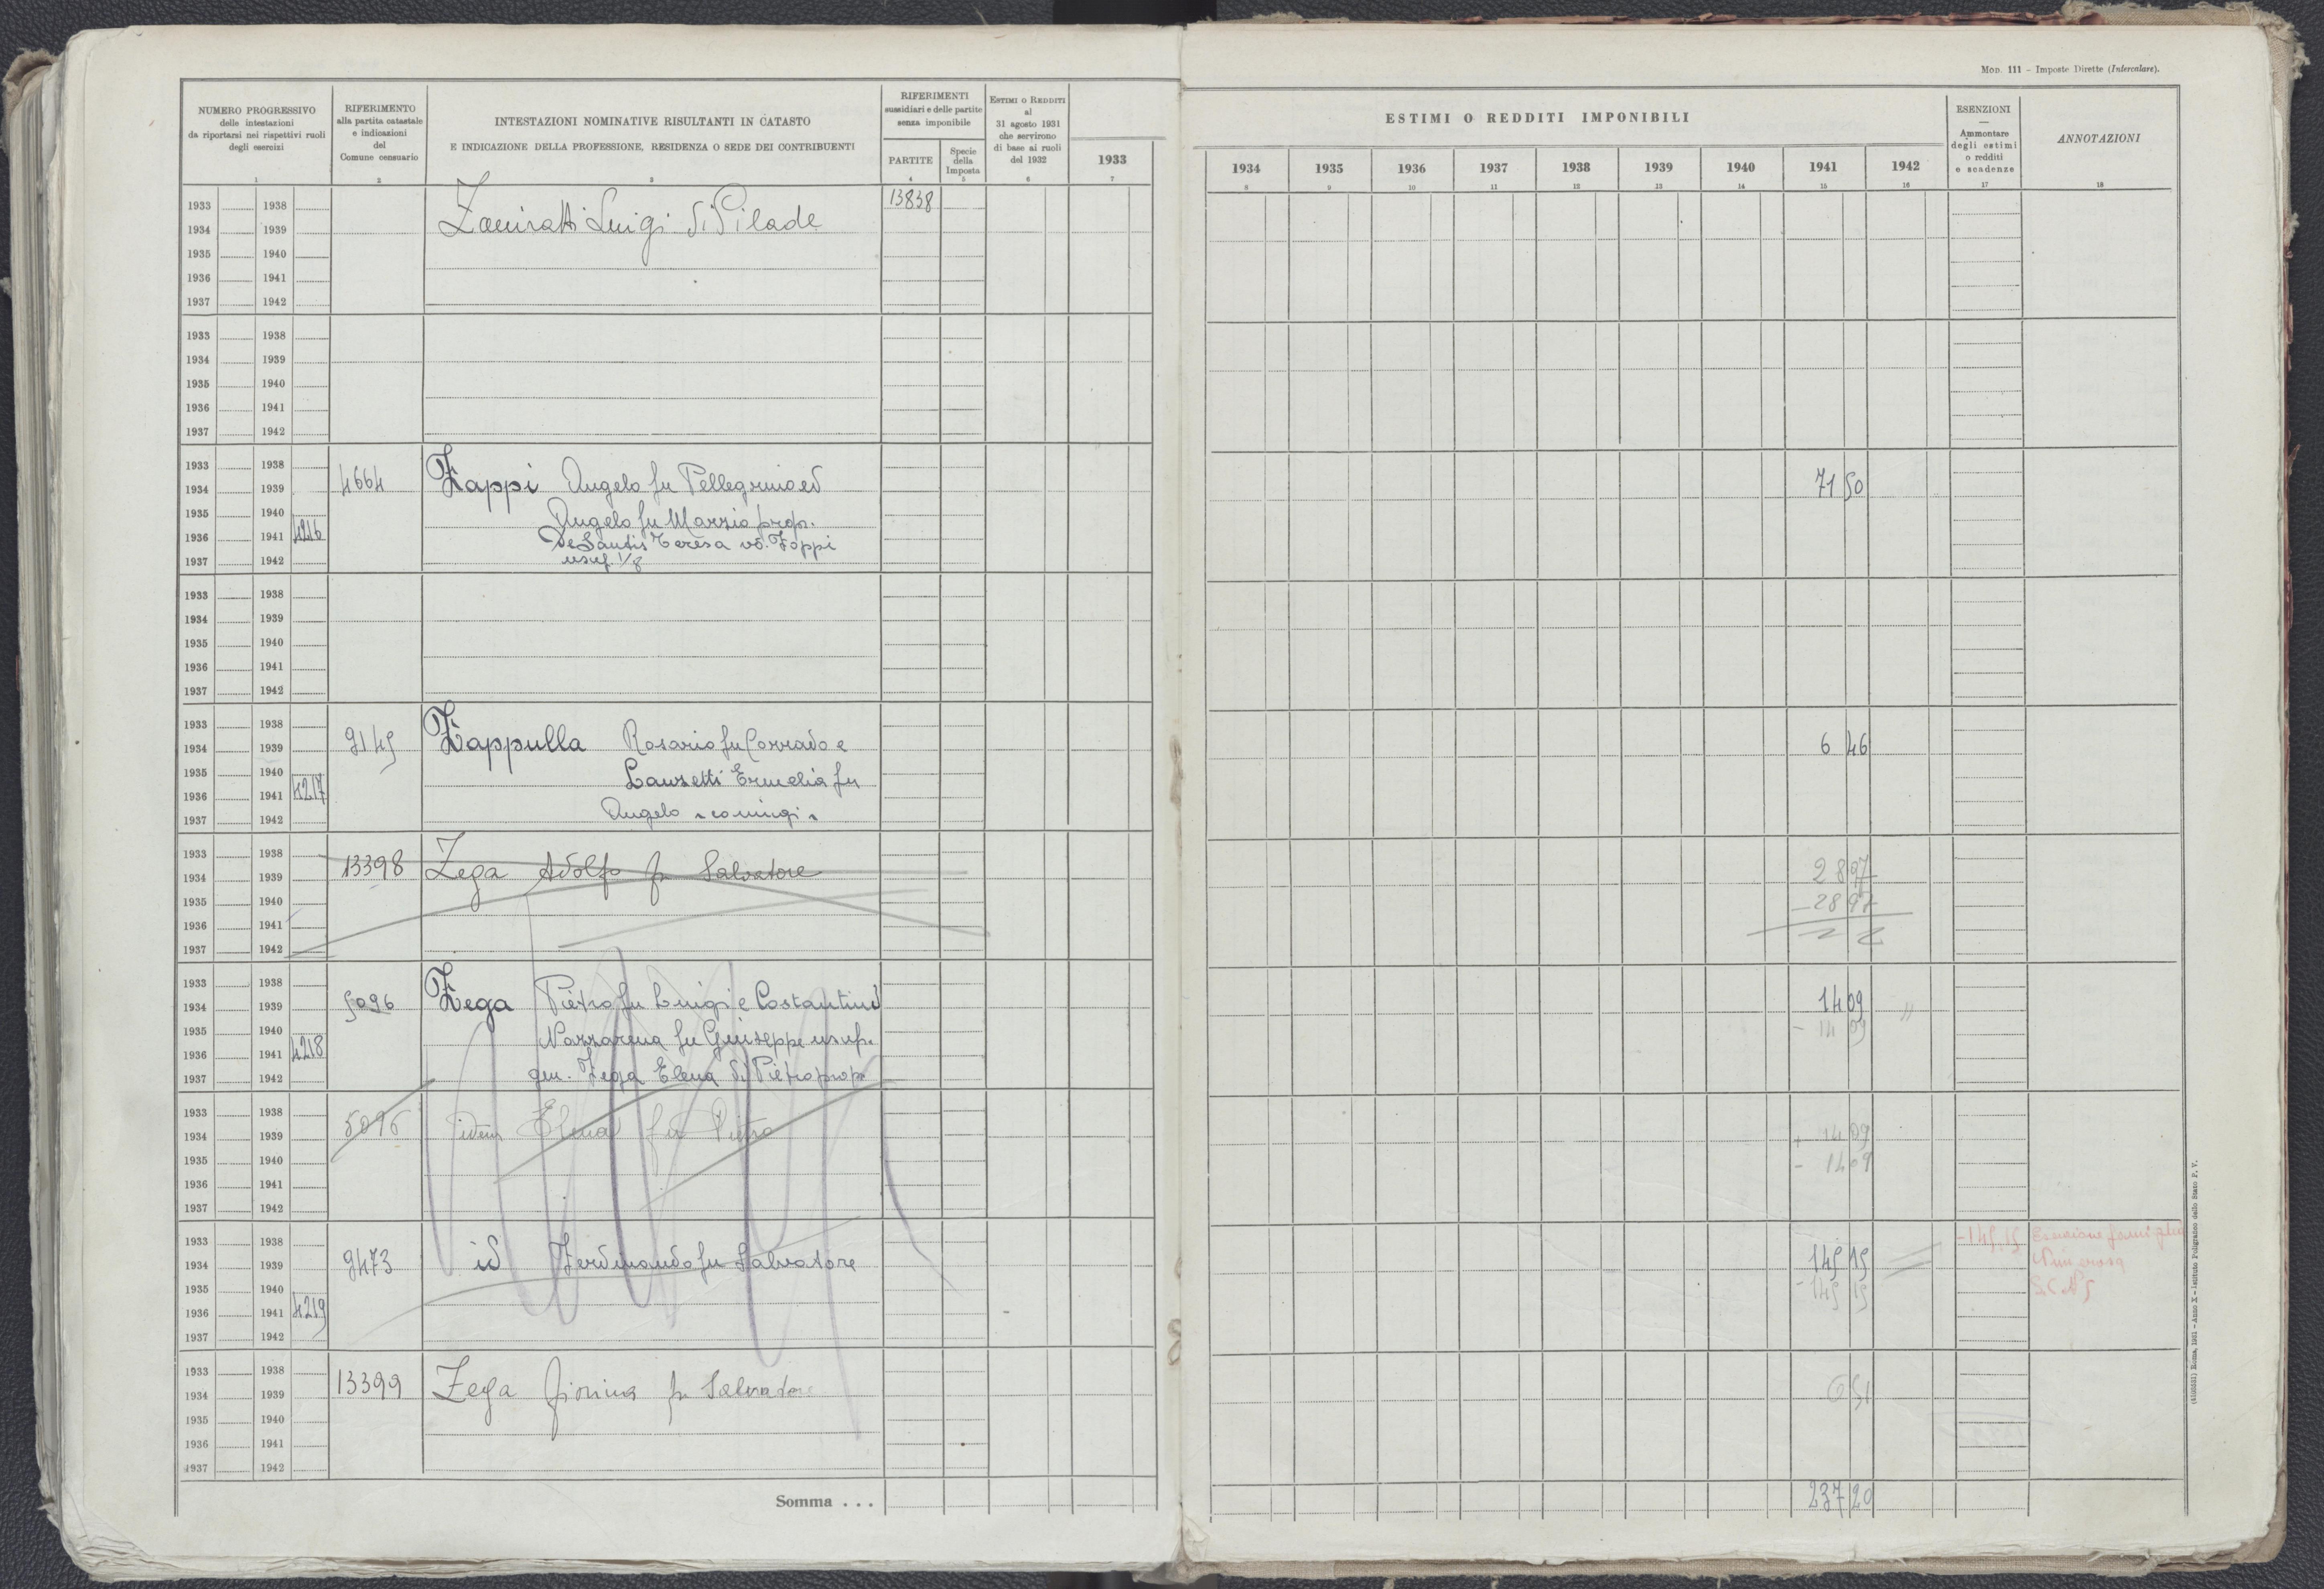 Mod. 111 - Imposte Dirette (Intercalare).
NUMERO PROGRESSIVO
delle intestazioni
da riportarsi nei rispettivi ruoli
degli esercizi
1
RIFERIMENTO
alla partita catastale
e indicazioni
del
Comune censuario
2
INTESTAZIONI NOMINATIVE RISULTANTI IN CATASTO
E INDICAZIONE DELLA PROFESSIONE, RESIDENZA O SEDE DEI CONTRIBUENTI
3
RIFERIMENTI
sussidiari e delle partite
senza imponibile
PARTITE
4
Specie
della
Imposta
5
Estimi o Redditi
al
31 agosto 1931
che servirono
di base ai ruoli
del 1932
6
ESTIMI O REDDITI IMPONIBILI
1933 1934 1935 1936 1937 1938 1939 1940 1941 1942
7 8 9 10 11 12 13 14 15 16
ESENZIONI
—
Ammontare
degli estimi
o redditi
e scadenze
17
ANNOTAZIONI
18
1933 1938 13838
1934 1939 Luigi di Pilade
1935 1940
1936 1941
1937 1942
1933 1938
1934 1939
1935 1940
1936 1941
1937 1942
1933 1938
1934 1939 4664 Zappi Angelo fu Pellegrino ed 71 50
1935 1940 Angelo fu Marzio prop.
1936 1941 4216 De Santis Teresa vd. Zappi
1937 1942 usuf. 1/8
1933 1938
1934 1939
1935 1940
1936 1941
1937 1942
1933 1938
1934 1939 9145 Zappulla Rosario fu Corrado e 6 46
1935 1940 Lanzetti Ermelia fu
1936 1941 4217
1937 1942 Angelo coniugi
1933 1938
1934 1939 13398 Zega Adolfo fu Salvatore 28 97
1935 1940 - 28 97
1936 1941
1937 1942
1933 1938
1934 1939 5096 Zega Pietro fu Luigi e Costantini 14 09 "
1935 1940 Nazzarena fu Giuseppe usuf. - 14 09
1936 1941 4218
1937 1942 gen. Zega Elena di Pietro prop.
1933 1938
1934 1939 5096 idem Elena fu Pietro + 14 09
1935 1940 - 14 09
1936 1941
1937 1942
1933 1938 - 145,15 Esenzione famiglia
1934 1939 9473 id Ferdinando fu Salvatore 145 15 Numerosa
1935 1940 - 145 15
1936 1941 4219
1937 1942
1933 1938
1934 1939 13399 Zega fu Salvatore 6 51
1935 1940
1936 1941
1937 1942
Somma . . . 237 20
Roma, 1931 - Anno X - Istituto Poligrafico dello Stato P. V.